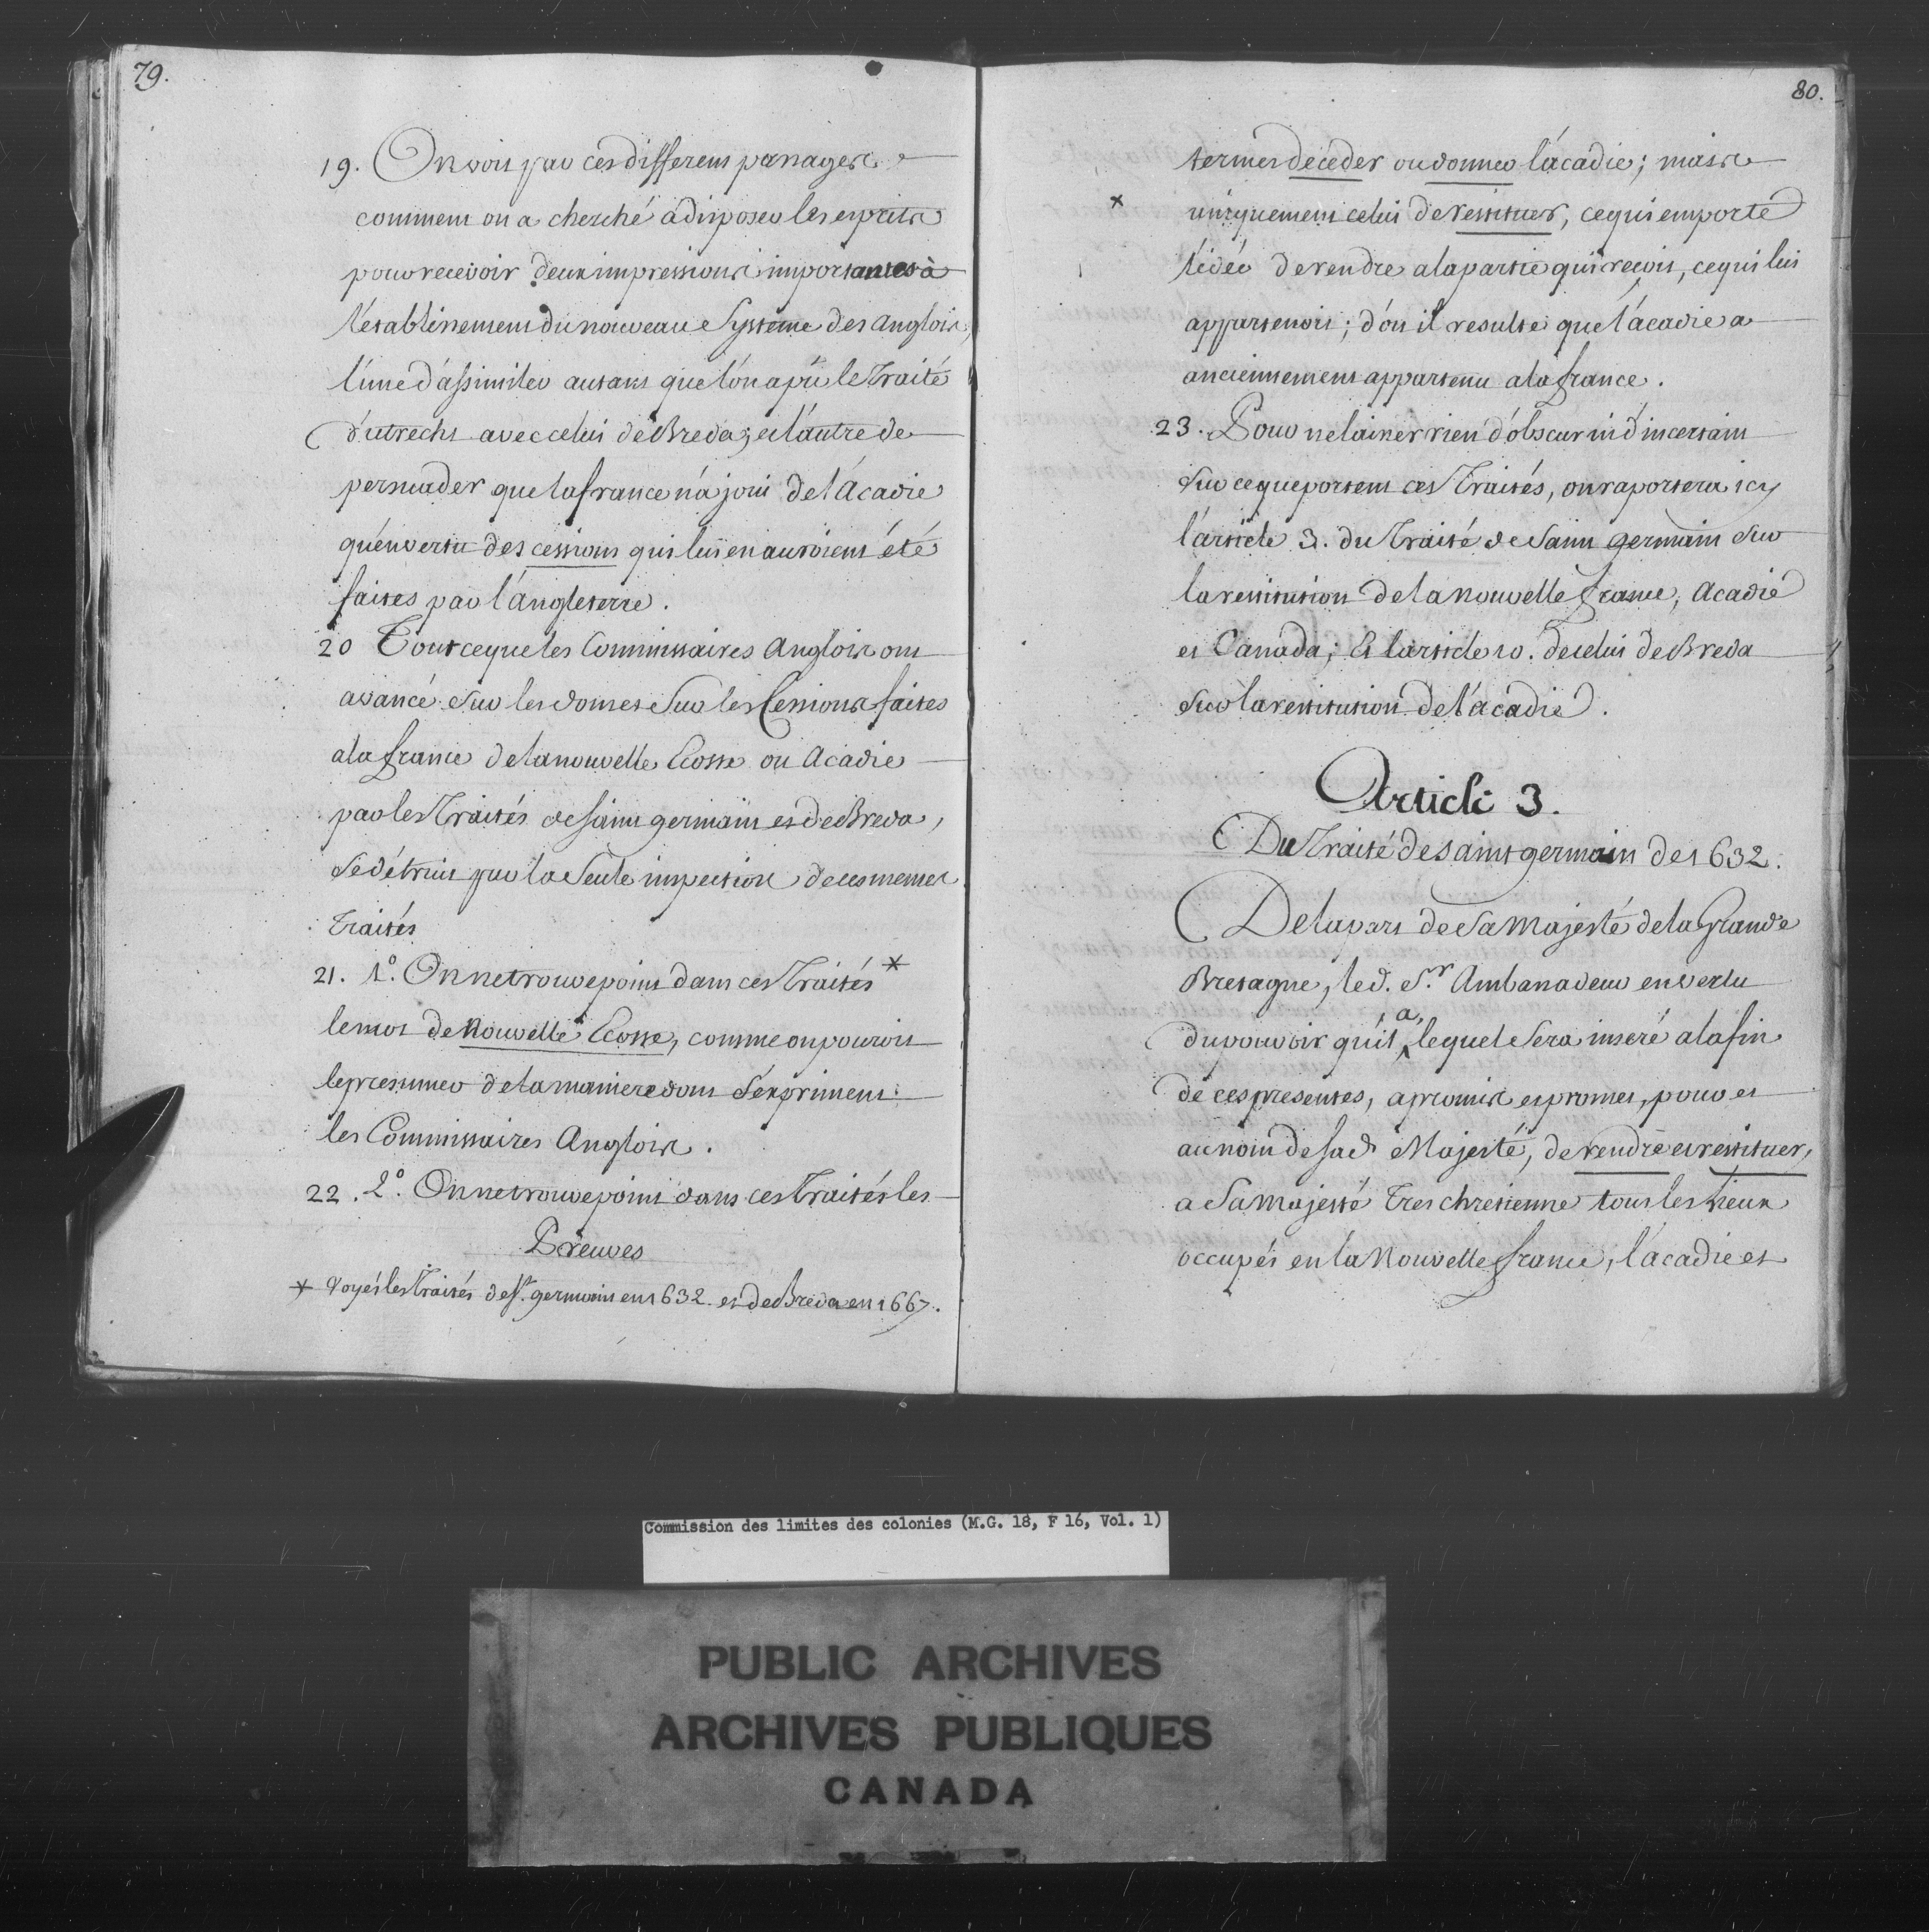 79.
19. On voit par ces differens passages
comment on a cherché à disposer les esprits
pour recevoir deux impressions importantes à
l'etablissement du nouveau Systeme des anglois,
l'une d'assimiler autant que l'on a pû le Traité
d'utrecht avec celui de Breda; et l'autre de
persuader que la france n'a joui de l'Acadie
qu'en vertu des cessions qui lui en auroient été
faites par l'Angleterre.
20 Tout ce que les Commissaires Anglois ont
avancé Sur les dons et Sur les Cessions faites
a la france de la nouvelle Ecosse ou Acadie
par les Traités de saint germain et de Breda,
se détruit par la Seule inspection de ces memes
Traités
21. 1º. On ne trouve point dans ces Traités *
le mot de Nouvelle Ecosse, comme on pouroit
le presumer de la maniere dont s'expriment
les Commissaires Anglois.
22. 2º. On ne trouve point dans ces Traités les
Preuves
* Voyés les Traités de St. germain en 1632. et de Breda en 1667.
80.
termes de ceder ou donner l'acadie; mais
x uniquement celui de restituer, ce qui emporte
l'idée de rendre a la partie qui reçoit, ce qui lui
appartenoit; d'ou il resulte que l'acadie a
anciennement appartenu a la france.
23. Pour ne laisser rien d'obscur ni d'incertain
Sur ce que portent ces Traités, on raportera icy
l'article 3. du Traité de Saint germain Sur
la restitution de la Nouvelle france, Acadie
et Canada; Et l'article 10. de celui de Breda
Sur la restitution de l'acadie.
Article 3.
Du Traité de saint germain de 1632.
De la part de Sa Majesté de la Grande
Bretagne, led. Sr. Ambassadeur en vertu
a
du pouvoir qu'il ^ lequel Sera inseré a la fin
de ces presentes, a promis et promet, pour et
au nom de sad. Majesté, de rendre et restituer,
a Sa Majesté Tres chretienne tous les Lieux
occupés en la Nouvelle france, l'acadie et
Commission des limites des colonies (M.G. 18, F 16, Vol. 1)
PUBLIC ARCHIVES
ARCHIVES PUBLIQUES
CANADA